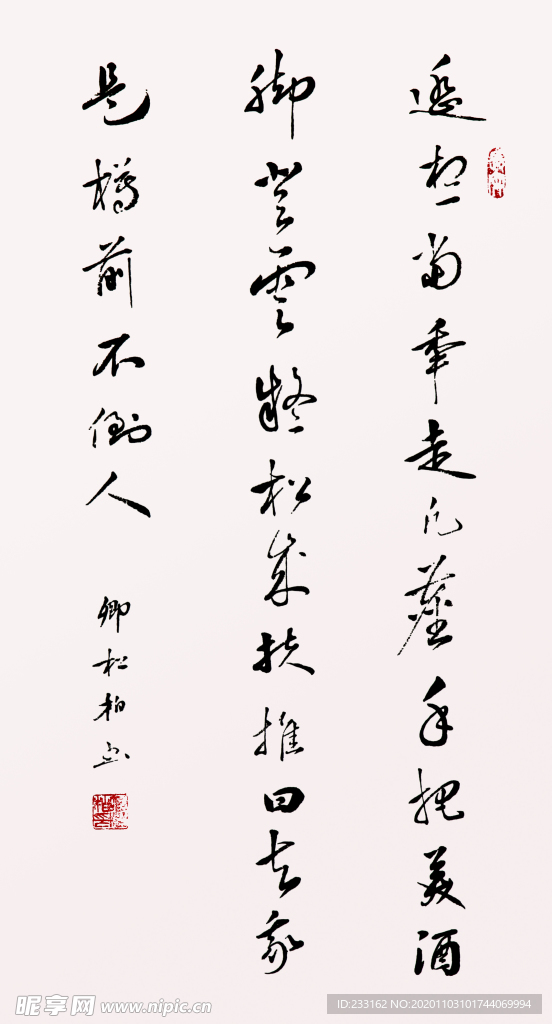 遥想当年走凡尘手把美酒
脚登云疑松来扶推曰去我
是樽前不倒人
卿松柏书
昵享网 www.nipic.cn
ID:233162 NO:20201103101744069994